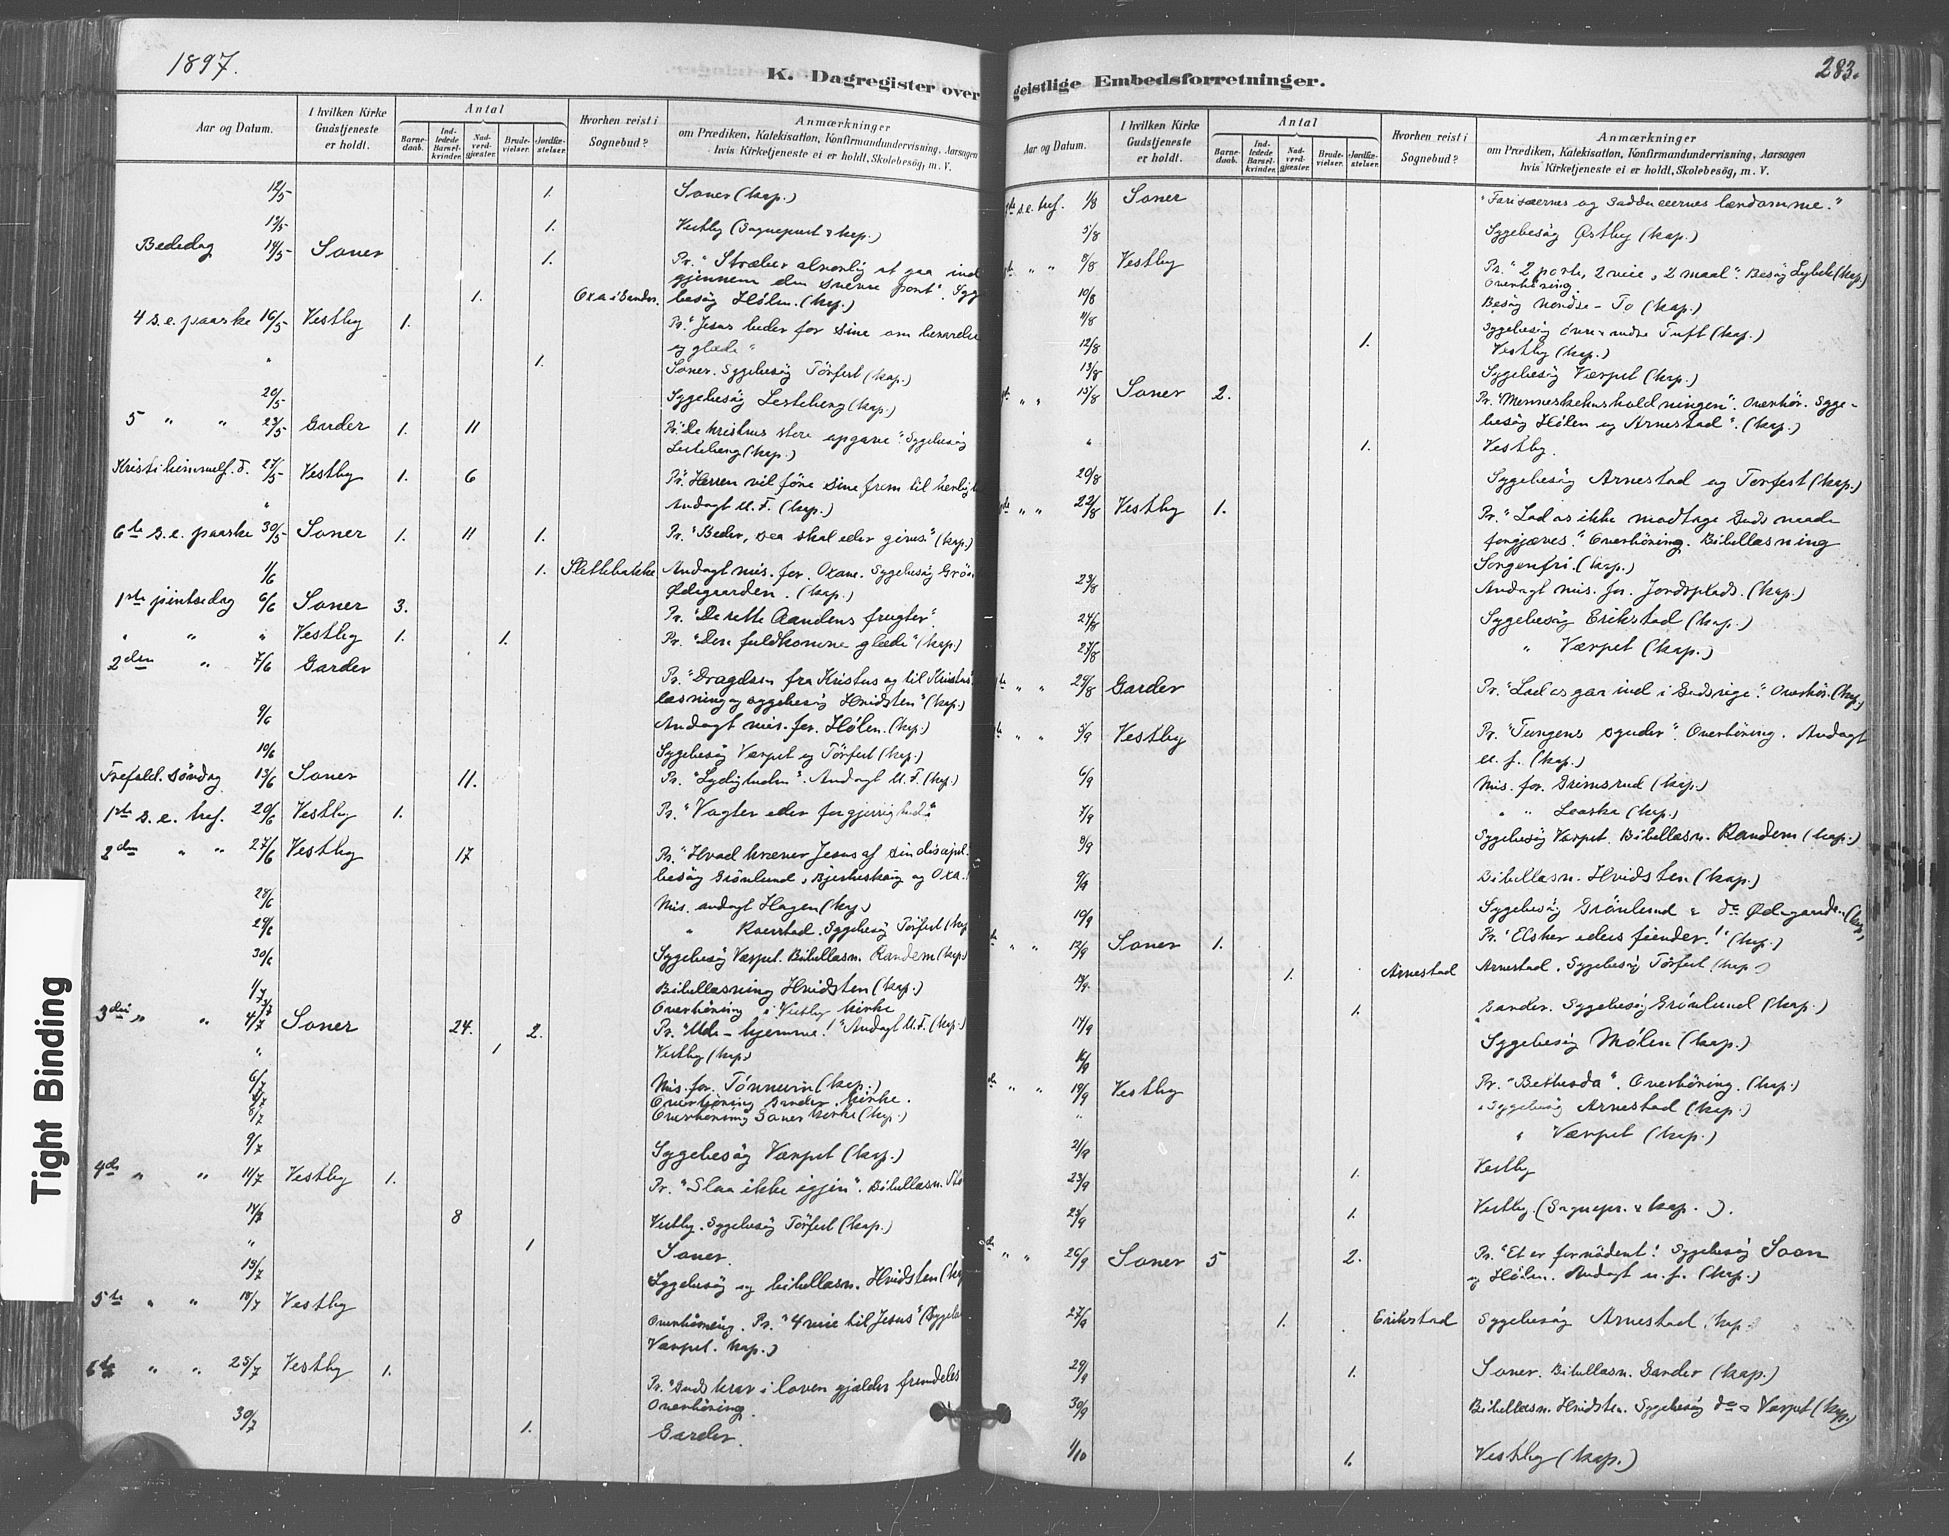 1897.
K. Dagregister over
Aar og Datum.
I hvilken Kirke Gudstjeneste er holdt.
Antal
Barnedaab.
Indledede Barselkvinder.
Nadverdgjester.
Brudevielser.
Jordfæstelser.
Hvorhen reist i Sognebud?
Anmærkninger
om Prædiken, Katekisation, Konfirmandundervisning, Aarsagen
hvis Kirketjeneste ei er holdt, Skolebesøg, m. V.
12/5 1. Soner (kap.)
12/5 1. Vestby (Sognepræst & kap.)
Bededag 14/5 Soner 1. Pr. "Stræber alvorlig at gaa ind
gjennem den snevre port".
1. Oxa i Sander. besøg Hølen. (kap.)
4 s.e. paaske 16/5 Vestby 1. Pr. "Jesus beder for sine om bevarelse
og glæde"
" 1. Soner. Sygebesøg Törfest (kap.)
20/5 Sygebesøg Lesteberg (kap.)
5 " " 23/5 Garder 1. 11 Pr. "De kristnes store opgave". Sygebesøg
Lesteberg (kap.)
Kristi himmelf. d. 27/5 Vestby 1. 6 Pr. "Herren vil føre sine frem til
" Andagt U.F. (kap.)
6te s.e. paaske 30/5 Soner 1. 11 1. Pr. "Beder, saa skal eder gives." (kap.)
1/6 1. Slettebakke Andagt mis. for. Oxane. Sygebesøg
Ødegaarden. (kap.)
1ste pintsedag 6/6 Soner 3. Pr. "De rette Aandens frugter".
" " " Vestby 1. 1. Pr. "Den fuldkomne glæde" (kap.)
2den " 7/6 Garder Pr. "Dragelsen fra Kristus og til Kristus"
læsning og sygebesøg Hvidsten" (kap.)
9/6 Andagt mis. for. Hølen. (kap.)
10/6 Sygebesøg Værpet og Törfest (kap.)
Trefold. Søndag 13/6 Soner 11. Pr. "Lydigheden". Andagt U.F. (kap.)
1ste s.e. tref. 20/6 Vestby 1. Pr. "Vagter eder for gjerrighed"
2den " " 27/6 Vestby 17 Pr. "Hvad kræver Jesus af sin
besøg Grönlund, Bjerkeskoug og Oxa.
28/6 Mis. andagt Hagen (kap.)
29/6 " Sygebesøg Törfest (kap.
30/6 Sygebesøg Værpet. Bibellæsn. Randem (kap.)
1/7 Bibellæsning Hvidsten (kap.)
3/7 Overhöring i Vestby kirke
3die " " 4/7 Soner 24. 2. Pr. "Ude - hjemme!" Andagt U.F. (kap.)
" 1 Vestby (kap.)
6/7 Mis. for. (kap.)
Overhöring kirke.
8/7 Overhöring Soner kirke (kap.)
9/7 Sygebesøg Værpet (kap.)
4de " " 11/7 Vestby 1. Pr. "Slaa ikke igjen". Bibellæsn.
14/7 8 Vestby. Sygebesøg Törfest (kap.)
" 1 Soner.
15/7 Sygebesøg og bibellæsn. Hvidsten (kap
5te " " 18/7 Vestby Overhöring. Pr. "4 veie til Jesus"
Værpet. kap.)
6te " " 25/7 Vestby 1. Pr. "Guds krav i loven gjælder fremdeles
Overhöring.
30/7 1. Garder.
283.
geistlige Embedsforretninger.
Aar og Datum.
I hvilken Kirke Gudstjeneste er holdt.
Antal
Barnedaab.
Indledede Barselkvinder.
Nadverdgjester.
Brudevielser.
Jordfæstelser.
Hvorhen reist i Sognebud?
Anmærkninger
om Prædiken, Katekisation, Konfirmandundervisning, Aarsagen
hvis Kirketjeneste ei er holdt, Skolebesøg, m. V.
s.e. tref. 1/8 Soner "Farisæernes og Sadducæernes lærdomme."
5/8 Sygebesøg Østby (kap.)
" " 8/8 Vestby Pr. "2 porte, 2 veie, 2 maal". Besøg (kap.)
Overhöring.
10/8 Besøg nordre - To (kap.)
11/8 Sygebesøg övre & nedre Tuft (kap.)
12/8 1. Vestby (kap.)
13/8 Sygebesøg Værpet (kap.)
" " 15/8 Soner 2. Pr. "Menneskehusholdningen". Overhör. Syge-
besøg Hølen og Arnestad". (kap.)
" 1. Vestby.
20/8 Sygebesøg Arnestad og Törfest (kap.)
" " 22/8 Vestby 1. Pr. "Lad os ikke modtage Guds naade
forgjæves." Overhöring. Bibellæsning
Sorgenfri. (kap.)
23/8 Andagt mis. for. Jordsplads. (kap.)
24/8 Sygebesøg Erikstad (kap.)
27/8 " Værpet (kap.)
" " 29/8 Garder Pr. "Lad os gaa ind i Guds rige". Overhör. (kap.)
" " 5/9 Vestby Pr. "Tungens synder". Overhöring. Andagt
u. f. (kap.)
6/9 Mis. for. Grimsrud (kap.)
7/9 " " (kap.)
8/9 Sygebesøg Værpet. Bibellæsn. Randem (kap.)
9/9 Bibellæsn. Hvidsten (kap.)
10/9 Sygebesøg Grönlund & do Ødegaarden (kap.)
" " 12/9 Soner 1. Pr. "Elsker eders fiender!" (kap.)
13/9. 1. Arnestad Arnestad. Sygebesøg Törfest (kap.)
14/9 1. Garder. Sygebesøg Grönlund (kap.)
16/9 Sygebesøg Mølen (kap.)
" " 19/9 Vestby Pr. "Bethesda". Overhöring. (kap.)
" Sygebesøg Arnestad (kap.)
21/9 " Værpet (kap.)
23/9 1. Vestby
25/9 1. Vestby. (Sognepr. & kap.).
" " 26/9 Soner 5 2. Pr. "Et er fornödent! Sygebesøg Soon
og Hølen. Andagt u. f. (kap.)
27/9 1. Erikstad Sygebesøg Arnestad. kap.
29/9 1. Soner. Bibellæsn. Sander (kap.)
30/9 Bibellæsn. Hvidsten. Sygebesøg do & Værpet (kap.)
1/10 1. Vestby (kap.)
Tight Binding